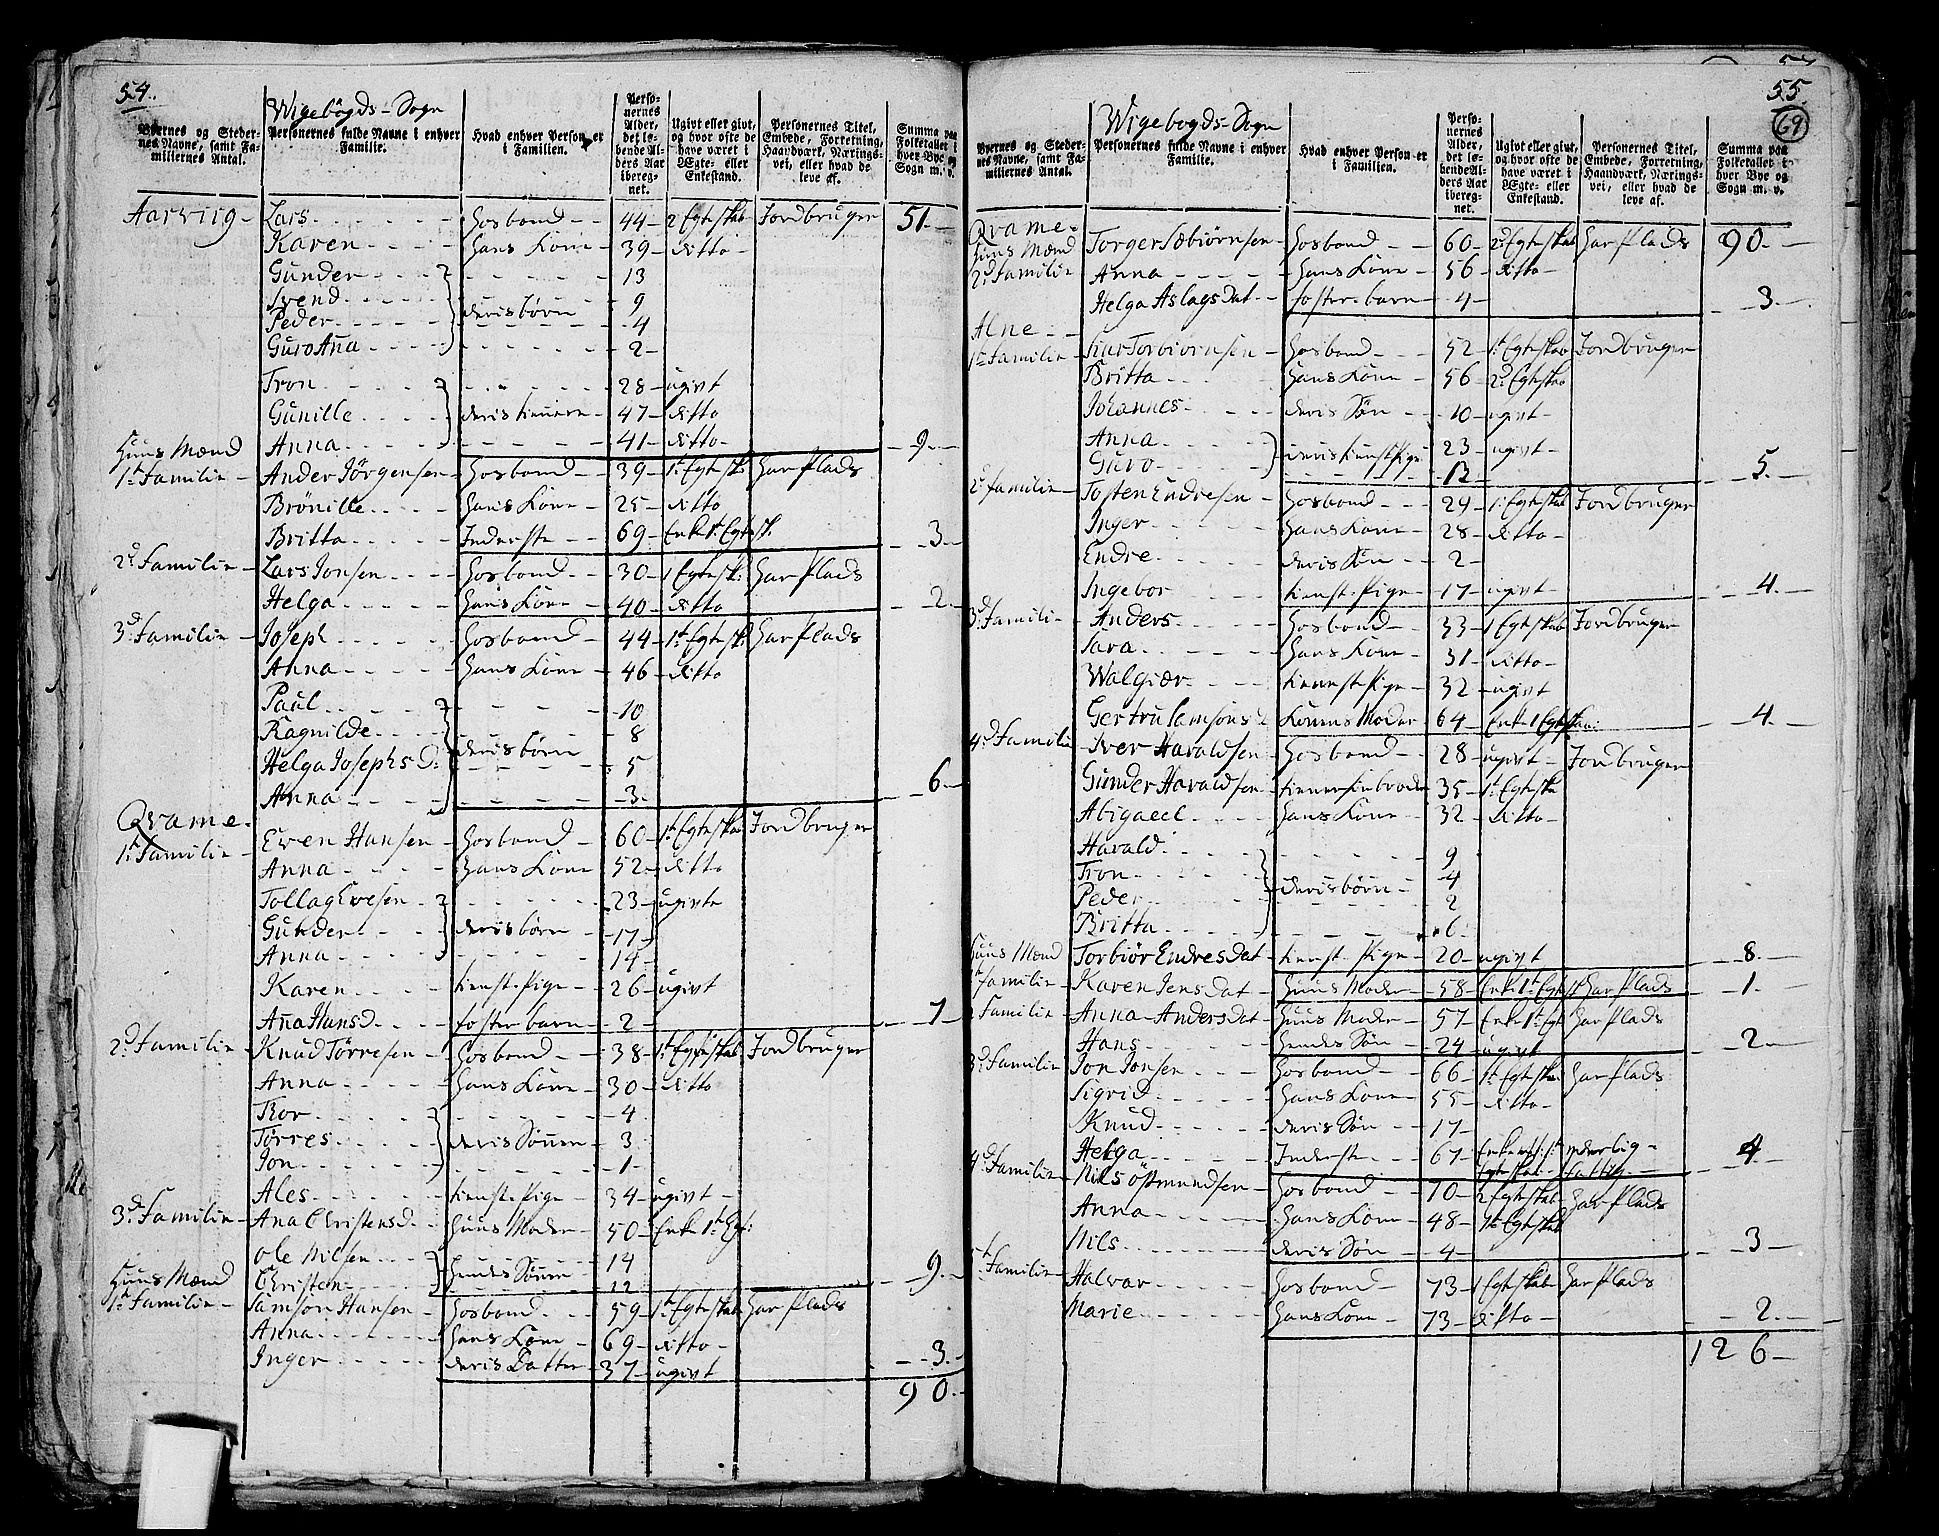 54.
Wigebögds-Sogn
Byernes og Steder-
nes Navne, samt Fa-
miliernes Antal.
Personernes fulde Navne i enhver
Familie.
Hvad enhver Person er
i Familien.
Perso-
nernes
Alder,
det lø-
bende Al-
ders Aar
ibereg-
net.
Ugivt eller givt,
og hvor ofte de
have været i
Ægte- eller
Enkestand.
Personernes Titel,
Embede, Forretning,
Haandværk, Nærings-
vei, eller hvad de
leve af.
Summa paa
Folketallet i
hver Bye og
Sogn m. v.
Aarvirg - Lars - Hosbond - 44 - 2 Egteskab Jordbruger 51.
Karen - Hans Kone - 39 - ditto -
Gunder - 13
Svend - 9
Peder - deris børn - 4
Guro Ana - 2 -
Tron - 28 - ugivt
Gunille - deris tienere - 47 - ditto
Anna - 41 - ditto - 9.
Huus Mænd
1t Familie - Ander Jörgensen - Hosbond - 39 - 1t Egtesk: Har Plads
Brönille - Hans Kone - 25 - ditto
Britta - Inderste - 69 - Enke 1t Egtesk. 3.
2d Familie - Lars Jonsen - Hosbond - 30 - 1 Egtesk: Har Plads
Helga - Hans Kone - 40 - ditto 2.
3d Familie - Joseph - Hosbond - 44 - 1t Egtesk: Har Plads
Anna - Hans Kone - 46 - ditto
Paul - 10
Ragnilde - 8
Helga Josephs D: deris børn - 5
Anna - 3 - 6
Qvame.
1t Familie - Even Hansen - Hosbond - 60 - 1t Egteskab Jordbruger
Anna - Hans Kone - 52 - ditto
Tollag Evesen - 23 - ugivte
Gunder - deris børn - 17 -
Anna - 14 -
Karen - tienste-Pige - 26 - ugivt
Aña Hansd. - foster barn - 2 - 7
2d Familie - Knud Törresen - Hosbond - 38 - 1t Egteskab Jordbruger
Anna - Hans Kone - 30 - ditto
Thor - 4
Törres - deris Sönner - 3
Jon - 1 -
Ales - tienste-Pige - 34 - ugivt -
3d Familie - Ana Christensd. - Huus Moder - 50 - Enke 1t Egt:
Ole Nilsen - 14
Christen - hendes Sönner - 12 - 9.
Huus Mænd
1t Familie - Samson Hansen - Hosbond - 59 - 1t Egteskab Har Plads
Anna - Hans Kone - 69 - ditto -
Inger - deris Datter - 37 - ugivt 3.
90.
55.
69
Wigebogds-Sogn
Byernes og Steder-
nes Navne, samt Fa-
miliernes Antal.
Personernes fulde Navne i enhver
Familie.
Hvad enhver Person er
i Familien.
Perso-
nernes
Alder,
det lø-
bende Al-
ders Aar
ibereg-
net.
Ugivt eller givt,
og hvor ofte de
have været i
Ægte- eller
Enkestand.
Personernes Titel,
Embede, Forretning,
Haandværk, Nærings-
vei, eller hvad de
leve af.
Summa paa
Folketallet i
hver Bye og
Sogn m. v.
Qvame -
Huus Mænd Torger Sæbiörnsen - Hosbond - 60 - 2d Egteskab Har Plads 90.
2d Familie Anna - Hans Kone - 56 - ditto -
Helga Aslags Dat - foster-barn - 4 - 3.
Alne -
1t Familie - Siur Torbiornsen - Hosbond - 52 - 1t Egteskab Jordbruger
Britta - Hans Kone - 56 - 2d Egteskab
Johannes - deris Sön - 10 - ugivt -
Anna - deris tienst Piger 23 - ugivt -
Guro - 12 - 5.
2d familie - Tosten Endresen - Hosbond - 24 - 1 Egteskab Jordbruger
Inger - Hans Kone - 28 - ditto -
Endre - deris Sön - 2 -
Ingebor - tienste-Pige - 17 - ugivt - 4.
3d Familie - Anders - Hosbond - 33 - 1 Egteskab Jordbruger
Sara - Hans Kone - 31 - ditto -
Walgiær - tienest-Pige - 32 - ugivt
Gertru Samsons: - Konens Moder 64 - Enke 1 Egteskab: 4.
4d Familie - Iver Haraldsen - Hosbond - 28 - ugivt - Jordbruger
Gunder Haraldsen - 35 - 1t Egteska
Abigaeel - Hans Kone - 32 - ditto -
Harald - 9
Tron - 4
Peder - deris börn - 2
Britta - 6
Huus Mænd Torbiör Endres Dat tienest-Pige - 20 - ugivt 8.
1t familie - Karen Jens Dat - Huus Moder - 58 - Enke 1t Egtesk Har Plads 1.
2 Familie - Anna Anders dat - Huus Moder - 57 - Enke 1t Egt Har Plads
Hans - hendes Sön - 24 - ugivt 2 -
3d Familie - Jon Jonsen - Hosbond - 66 - 1t Egteska: Har Plads
Sigrid - Hans Kone - 55 - ditto -
Knud - deris Sön - 17 -
Helga - Inderste - 67 - Enke 4
Egteskab - fattig -
4d Familie - Nils Östmundsen - Hosbond - 70 - 2 Egteskab Har Plads
Anna - Hans Kone - 48 - 1t Egteskab
Nils - deris Sön - 4 - 3 -
5t Familie - Halvar - Hosbond - 73 - 1 Egteskab Har Plads
Marie - Hans Kone - 73 - ditto - 2.
126 -